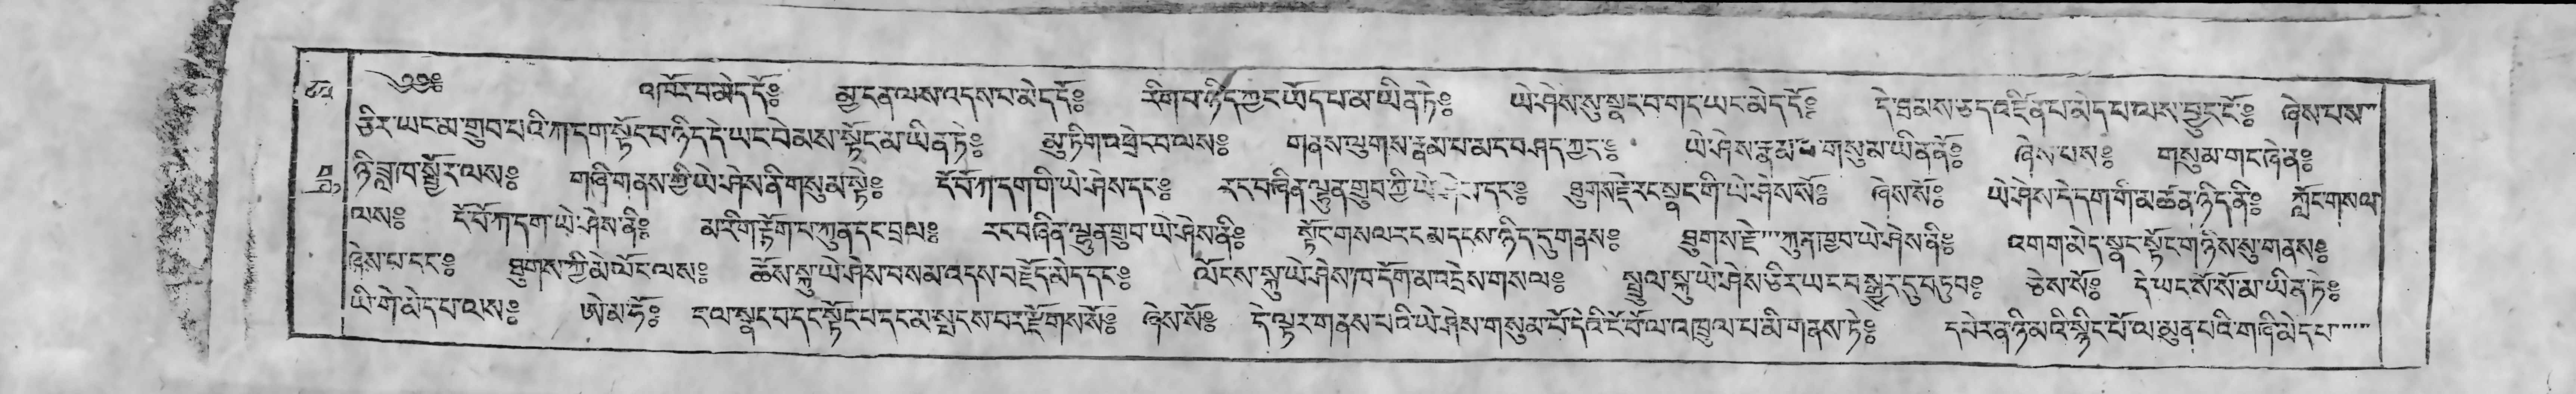 ༄༅༔ འཁོར་བ་མེད་དོ༔ མྱ་ངན་ལས་འདས་པ་མེད་དོ༔ རིག་པ་ཉིད་ཀྱང་ཡོད་པ་མ་ཡིན་ཏེ༔ ཡེ་ཤེས་སུ་སྣང་བ་གང་ཡང་མེད་དོ༔ དེ་ཐམས་ཅད་འཛིན་པ་མེད་པ་ལས་བྱུང་ངོ༔ ཞེས་པས
ཅིར་ཡང་མ་གྲུབ་པའི་ཀ་དག་སྟོང་པ་ཉིད་དེ་ཡང་བེམས་སྟོང་མ་ཡིན་ཏེ༔ མུ་ཏིག་འཕྲེང་བ་ལས༔ གནས་ལུགས་རྣམ་པ་མང་བཤད་ཀྱང༔ ཡེ་ཤེས་རྣམ་པ་གསུམ་ཡིན་ནོ༔ ཞེས་པས༔ གསུམ་གང་ཞེ་ན༔
ཉི་ཟླ་ཁ་སྦྱོར་ལས༔ གཞི་གནས་ཀྱི་ཡེ་ཤེས་ནི་གསུམ་སྟེ༔ ངོ་བོ་ཀ་དག་གི་ཡེ་ཤེས་དང༔ རང་བཞིན་ལྷུན་གྲུབ་ཀྱི་ཡེ་ཤེས་དང༔ ཐུགས་རྗེ་རང་སྣང་གི་ཡེ་ཤེས་སོ༔ ཞེས་སོ༔ ཡེ་ཤེས་དེ་དག་གི་མཚན་ཉིད་ནི༔ ཀློང་གསལ
ལས༔ ངོ་བོ་ཀ་དག་ཡེ་ཤེས་ནི༔ མ་རིག་རྟོག་པ་ཀུན་དང་བྲལ༔ རང་བཞིན་ལྷུན་གྲུབ་ཡེ་ཤེས་ནི༔ སྟོང་གསལ་རང་མདངས་ཉིད་དུ་གནས༔ ཐུགས་རྗེ་ཀུན་ཁྱབ་ཡེ་ཤེས་ནི༔ འགག་མེད་སྣང་སྟོང་གཉིས་སུ་གནས༔
ཞེས་པ་དང༔ ཐུགས་ཀྱི་མེ་ལོང་ལས༔ ཆོས་སྐུ་ཡེ་ཤེས་བསམ་འདས་བརྗོད་མེད་དང༔ ལོངས་སྐུ་ཡེ་ཤེས་ཁ་དོག་མ་འདྲེས་གསལ༔ སྤྲུལ་སྐུ་ཡེ་ཤེས་ཅིར་ཡང་བསྒྱུར་དུ་བཏུབ༔ ཅེས་སོ༔ དེ་ཡང་སོ་སོ་མ་ཡིན་ཏེ༔
ཡི་གེ་མེད་པ་ལས༔ ཨེ་མ་ཧོ༔ ང་ལ་སྣང་བ་དང་སྟོང་པ་དང་མ་སྤངས་བར་རྫོགས་སོ༔ ཞེས་སོ༔ དེ་ལྟར་གནས་པའི་ཡེ་ཤེས་གསུམ་པོ་དེའི་ངོ་བོ་ལ་འཁྲུལ་པ་མི་གནས་ཏེ༔ དཔེར་ན་ཉི་མའི་སྙིང་པོ་ལ་མུན་པའི་གཞི་མེད་པ